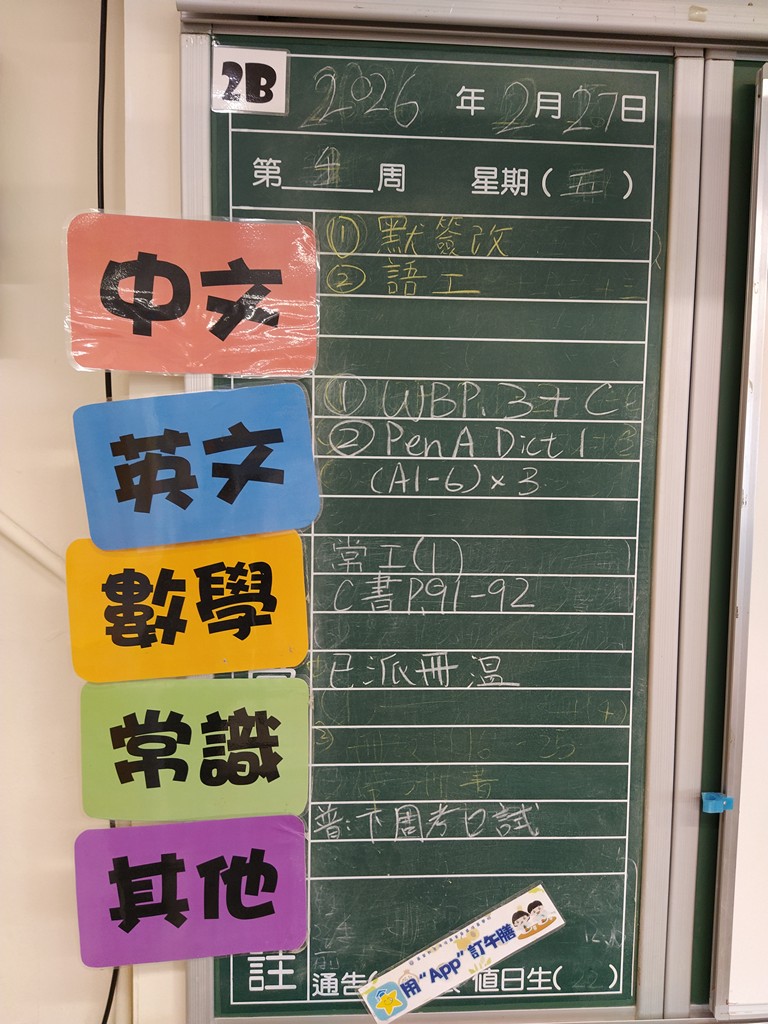 2B 2026 年 2月27日
第 4 周 星期(五)
中文
① 默簽改
② 語工
英文
① WBP.3 + C
② Pen A Dict 1
(A1-6) x 3
數學
常工(1)
C書P.91-92
常識
已派冊溫
其他
普:下周考口試
註
通告( 值日生(22)
用“App”訂午膳